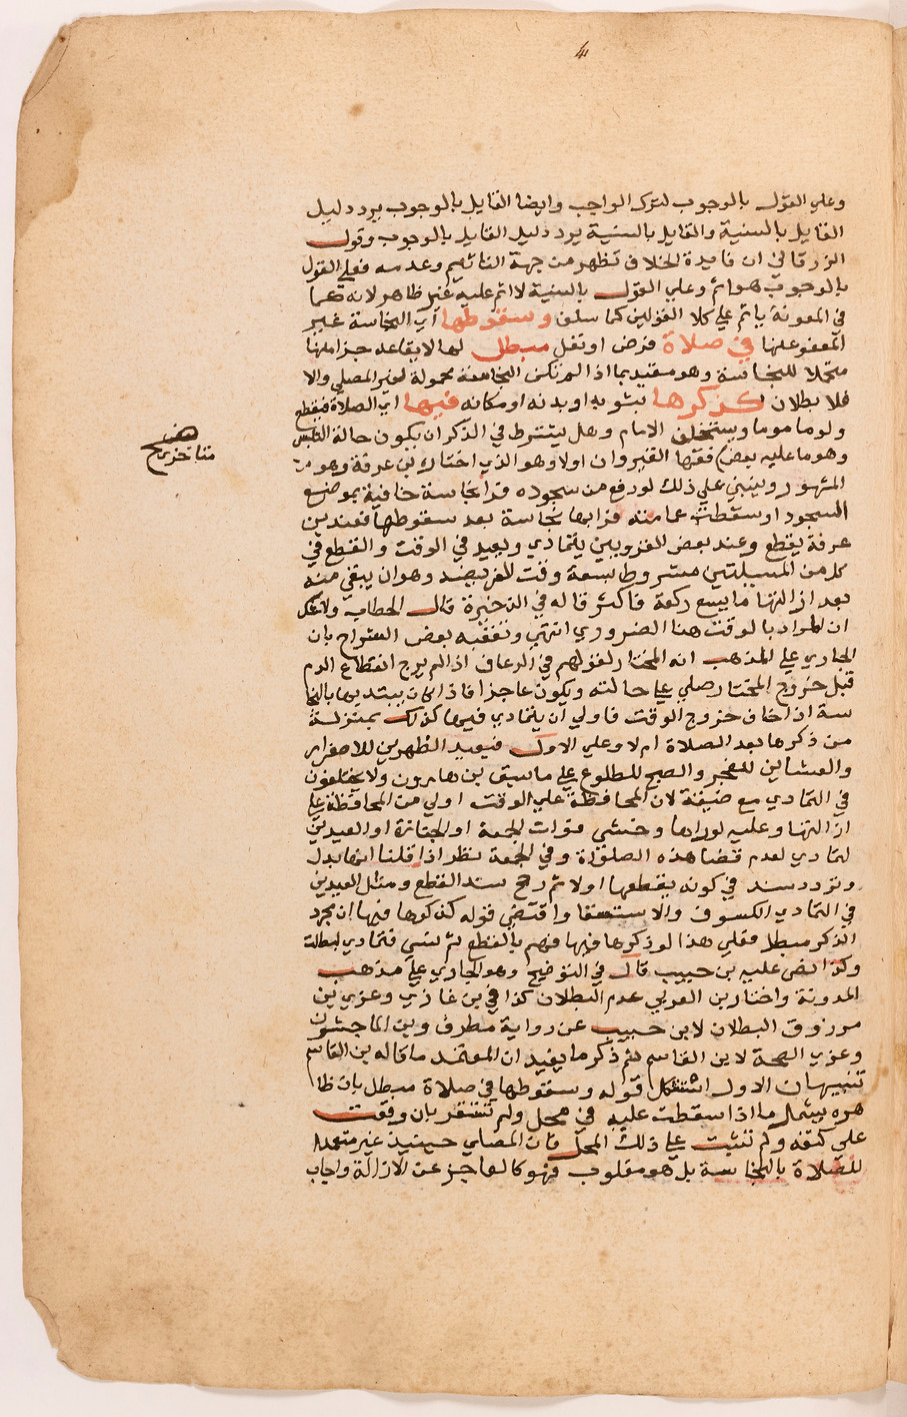 وعلي القول بالوجوب لترك الواجب وايضا القايل بالوجوب يرد دليل
القايل بالسنية والقايل بالسنية يرد دليل القايل بالوجوب وقول
الزرقاني ان فايدة الخلاف تظهر من جهة التاثيم وعدمه فعلي القول
بالوجوب هو اثم وعلي القول بالسنية لا اثم عليه غير ظاهر لانه كما
في المعونة ياثم علي كلا القولين كما سلف وسقوطها اي النجاسة غير
المعفو عنها في صلاة فرض او نفل مبطل لها لايقاعه جزا منها
متحملا للنجاسة وهو مقيد بما اذا لم تكن النجاسة محمولة لغير المصلي والا
فلا بطلان كذكرها بثوبه او بدنه او مكانه فيها اي الصلاة فيقطع
ولو ماموما ويستخلف الامام وهل يشترط في الذكر ان يكون حالة التلبس
وهو ما عليه بعض فقها القيروان اولا وهو الذي اختاره بن عرفة وهو
المشهور وينبني علي ذلك لو رفع من سجوده فرا نجاسة جافية بموضع
السجود او سقطت عمامته فرا بها نجاسة بعد سقوطها فعند بن
عرفة يقطع وعند بعض القرويين يتمادي ويعيد في الوقت والقطع في
كل من المسيلتين مشروط بسعة وقت وهو ان يبقي منه
بعد ازالتها ما يسع ركعة فاكثر قاله في الذخيرة قال الحطاب
ان المراد بالوقت هنا الضروري انتهي وتعقبه بعض الشراح بان
الجاري علي المذهب انه المختار لقولهم في الرعاف اذا لم يرج انقطاع الدم
قبل خروج المختار صلي علي حالته ويكون عاجزا فاذا كان يبتديها بالنجا
سة اذا خاف خروج الوقت فاولي ان يتمادي فيها كذلك بمنزلة
من ذكرها بعد الصلاة ام لا وعلي الاول فيعيد الظهرين للاصفرار
والعشاين للفجر والصبح للطلوع علي ما سبق بن هارون ولا يختلفون
في التمادي مع ضيقه لان المحافظة علي الوقت اولي من المحافظة علي
ازالتها وعليه لو راها وخشي فوات الجمعة او الجنازة او العيدين
لتمادي لعدم قضا هذه الصلاة وفي الجمعة نظر اذا قلنا انها بدل
وتردد سند في كونه يقطعها اولا ثم رجح سند القطع ومثل العيدين
في التمادي الكسوف والاستسقا واقتضي قوله كذكرها فيها ان مجرد
الذكر مبطل فعلي هذا لو ذكرها فيها فهم بالقطع ثم نسي فتمادي لبطلت
وكذا نص عليه بن حبيب قال في التوضيح وهو الجاري علي مذهب
المدونة واختار بن العربي عدم البطلان كذا في بن غازي وعزي بن
مرزوق البطلان لابن حبيب عن رواية مطرف وبن الماجشون
وعزي الصحة لابن القاسم ثم ذكر ما يفيد ان المعتمد ما قاله بن القاسم
تنبيهان الاول استشكل قوله وسقوطها في صلاة مبطل بان ظا
هره يشمل ما اذا سقطت عليه في محل ولم تستقر بان وقعت
علي كتفه ولم تثبت علي ذلك المحل فان المصلي حينيذ غير متعمد
للصلاة بالنجاسة بل هو مغلوب فهو كالعاجز عن الازالة واجاب